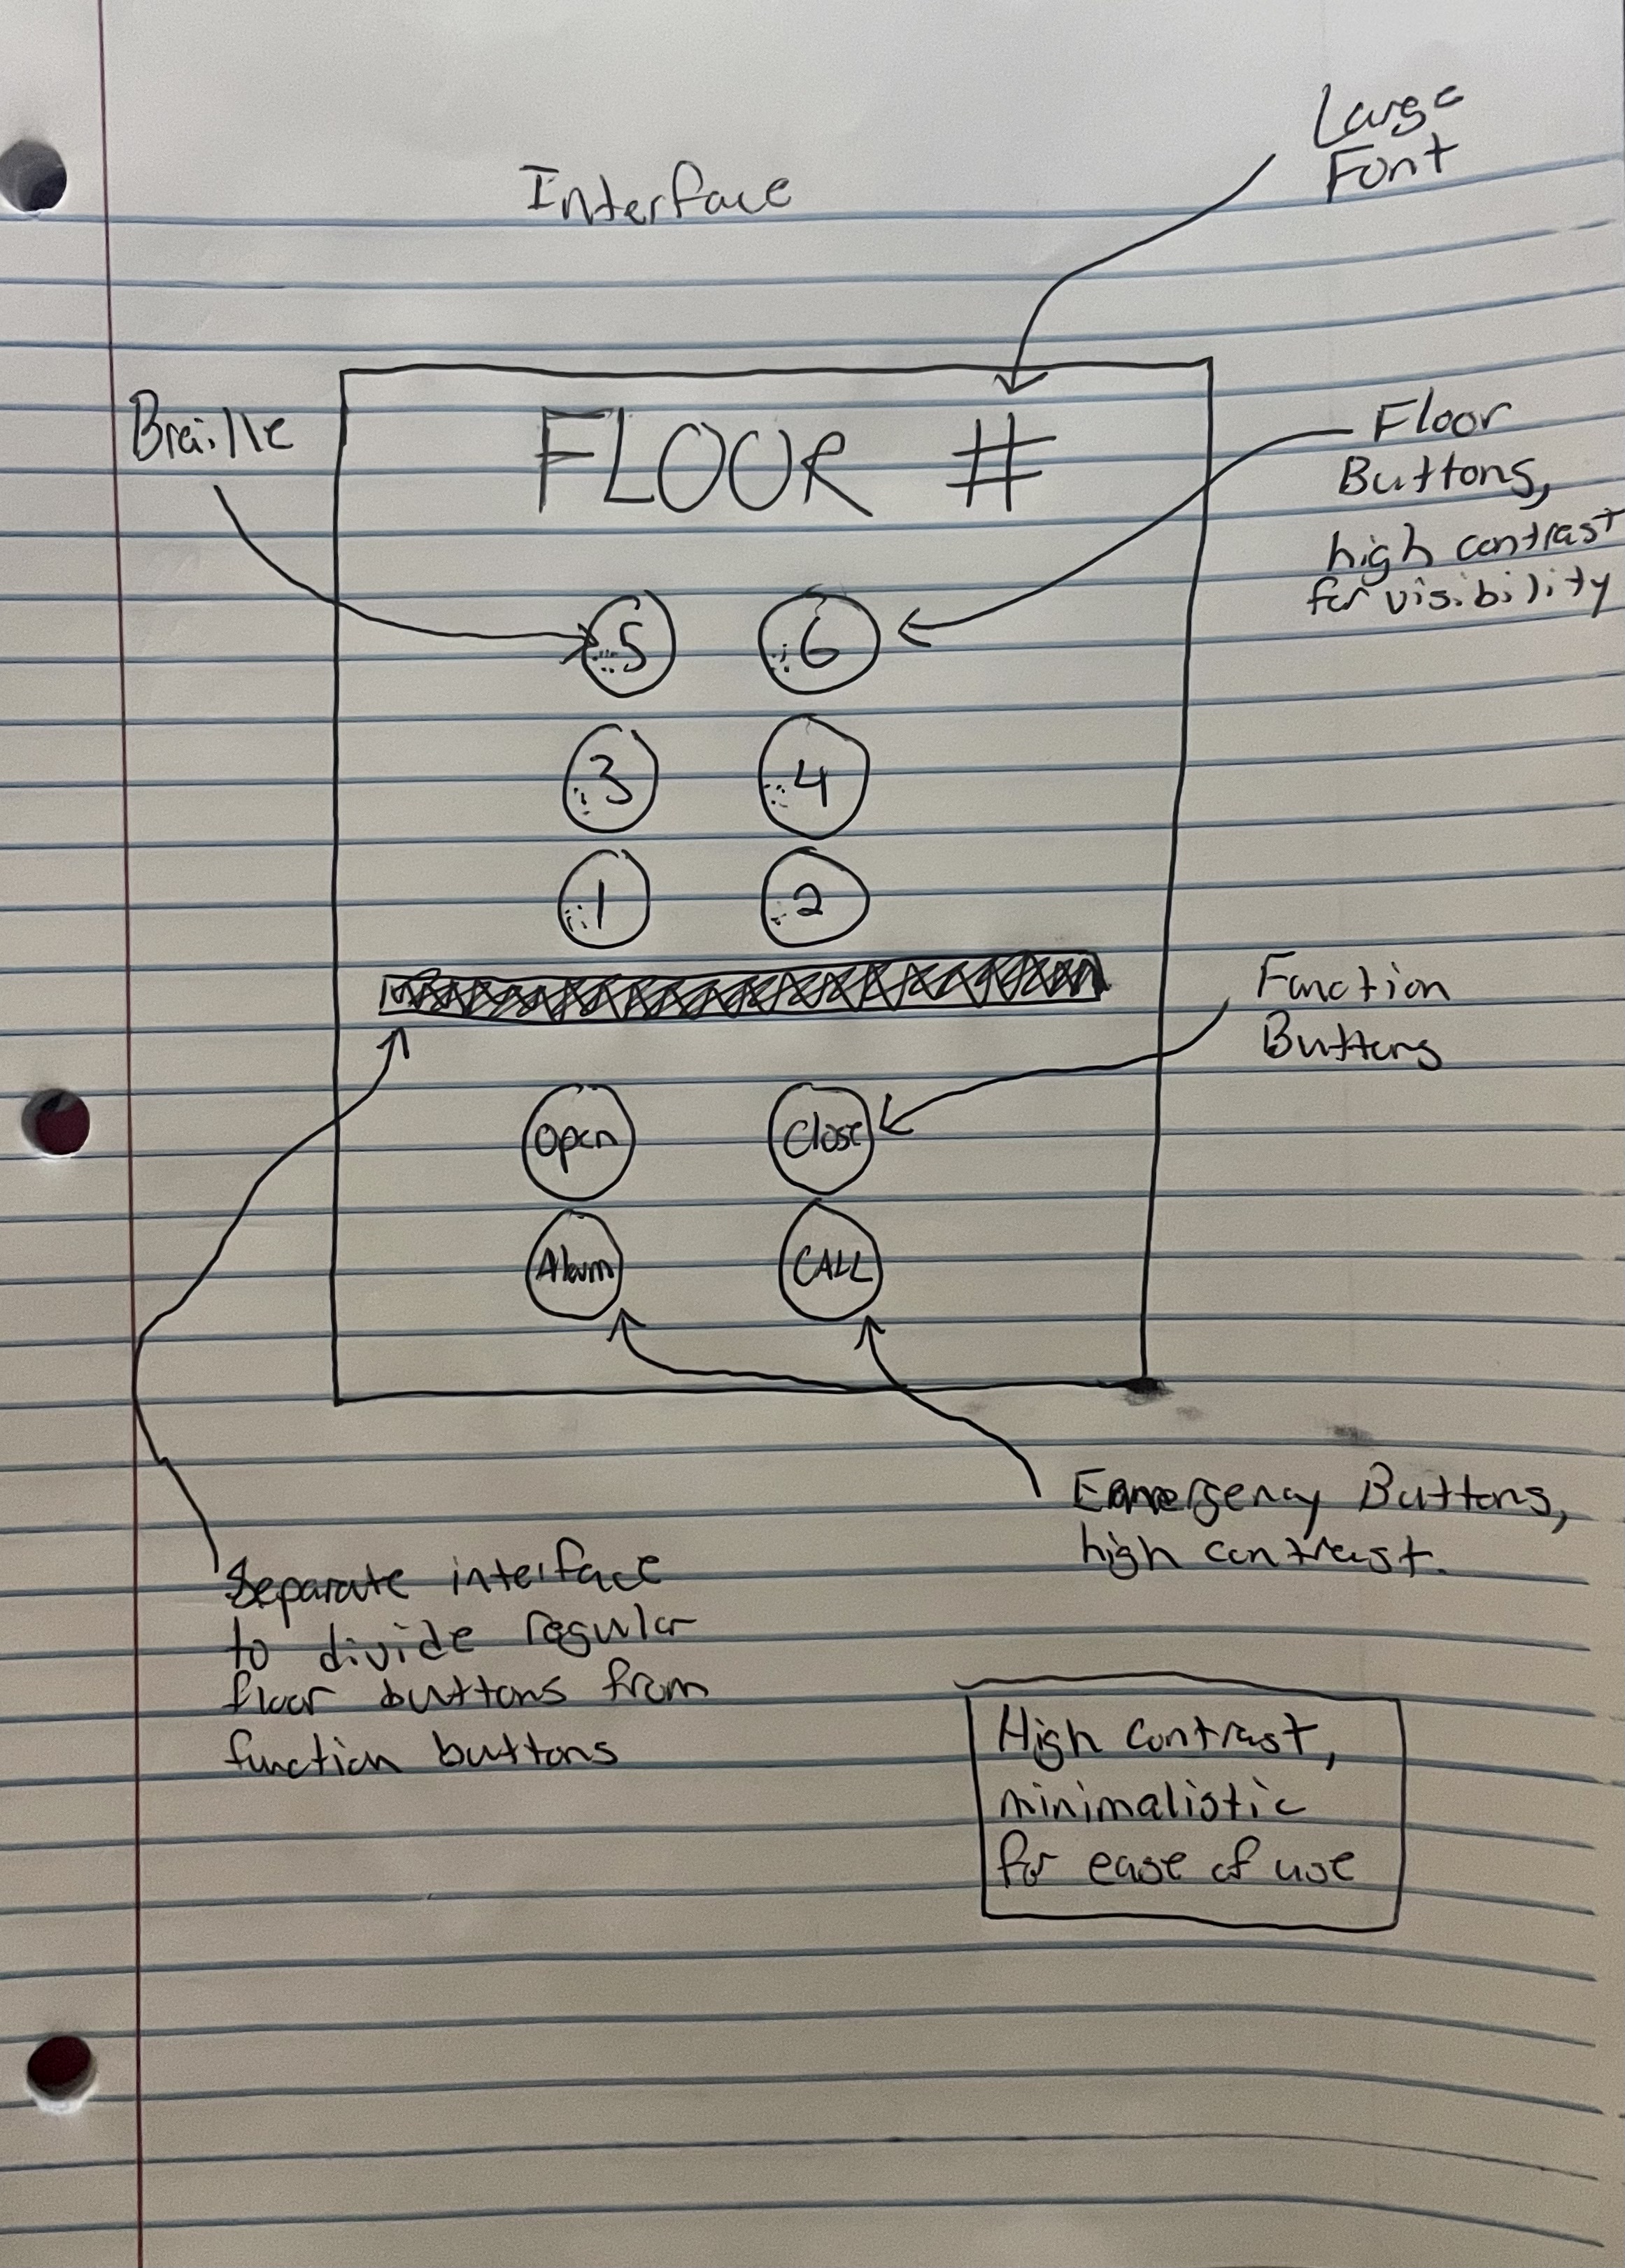 Large
Font
Interface
Braille
FLOOR #
Floor
Buttons,
high contrast
for visibility
5 6
3 4
1 2
Function
Buttons
Open Close
Alarm CALL
Emergency Buttons,
high contrast.
Separate interface
to divide regular
floor buttons from
function buttons
High contrast,
minimalistic
for ease of use